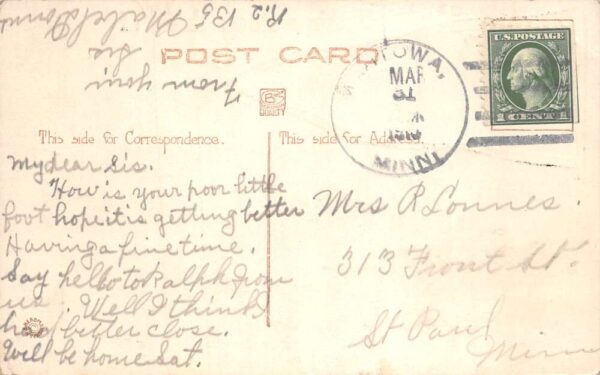 From your
Sis
POST CARD
U.S. POSTAGE
1 CENT 1
MAR
31
MINN.
This side for Correspondence.
This side for Address.
My dear Sis.
How is your poor little
foot hope it is getting better
Having a fine time.
Say hello to Ralph from
me. Well I think I
had better close.
Will be home Sat.
Mrs R Lonnes.
313 Front St.
St Paul
Minn